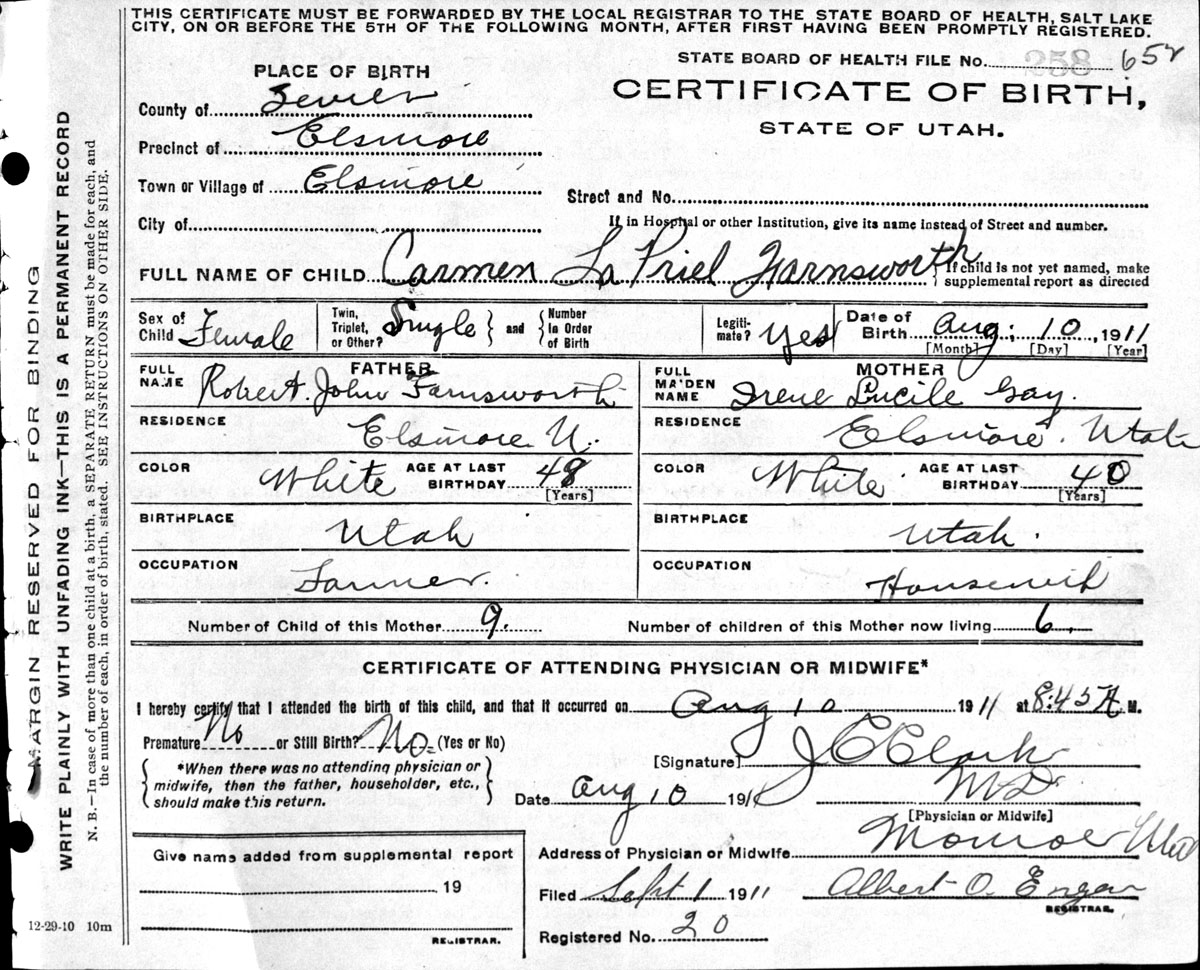 THIS CERTIFICATE MUST BE FORWARDED BY THE LOCAL REGISTRAR TO THE STATE BOARD OF HEALTH, SALT LAKE
CITY, ON OR BEFORE THE 5TH OF THE FOLLOWING MONTH, AFTER FIRST HAVING BEEN PROMPTLY REGISTERED.
STATE BOARD OF HEALTH FILE No. 258 652
PLACE OF BIRTH
CERTIFICATE OF BIRTH,
STATE OF UTAH.
County of Sevier
Precinct of Elsinore
Town or Village of Elsinore
Street and No.
City of
If in Hospital or other Institution, give its name instead of Street and number.
FULL NAME OF CHILD Carmen La Priel Farnsworth
{If child is not yet named, make
supplemental report as directed
Sex of Child Female
Twin, Triplet, or Other? Single } and { Number In Order of Birth
Legiti- mate? Yes
Date of Birth Aug. 10, 1911
[Month] [Day] [Year]
FATHER
FULL NAME Robert John Farnsworth
RESIDENCE Elsinore U.
COLOR White AGE AT LAST BIRTHDAY 48
[Years]
BIRTHPLACE Utah
OCCUPATION Farmer.
MOTHER
FULL MAIDEN NAME Irene Lucile Gay.
RESIDENCE Elsinore. Utah
COLOR White AGE AT LAST BIRTHDAY 40
[Years]
BIRTHPLACE Utah.
OCCUPATION Housewife
Number of Child of this Mother 9.
Number of children of this Mother now living 6.
CERTIFICATE OF ATTENDING PHYSICIAN OR MIDWIFE*
I hereby certify that I attended the birth of this child, and that it occurred on Aug 10 1911 at 8:45 A M.
Premature No or Still Birth? No. (Yes or No)
{ *When there was no attending physician or
midwife, then the father, householder, etc.,
should make this return. }
[Signature] J C Clark
M D
Date Aug 10 1911
[Physician or Midwife]
Address of Physician or Midwife Monroe Utah
Give name added from supplemental report
19
REGISTRAR.
Filed Sept 1 1911
Albert O. Engar
REGISTRAR.
Registered No. 20
12-29-10 10m
MARGIN RESERVED FOR BINDING
WRITE PLAINLY WITH UNFADING INK—THIS IS A PERMANENT RECORD
N. B.—In case of more than one child at a birth, a SEPARATE RETURN must be made for each, and
the number of each, in order of birth, stated. SEE INSTRUCTIONS ON OTHER SIDE.